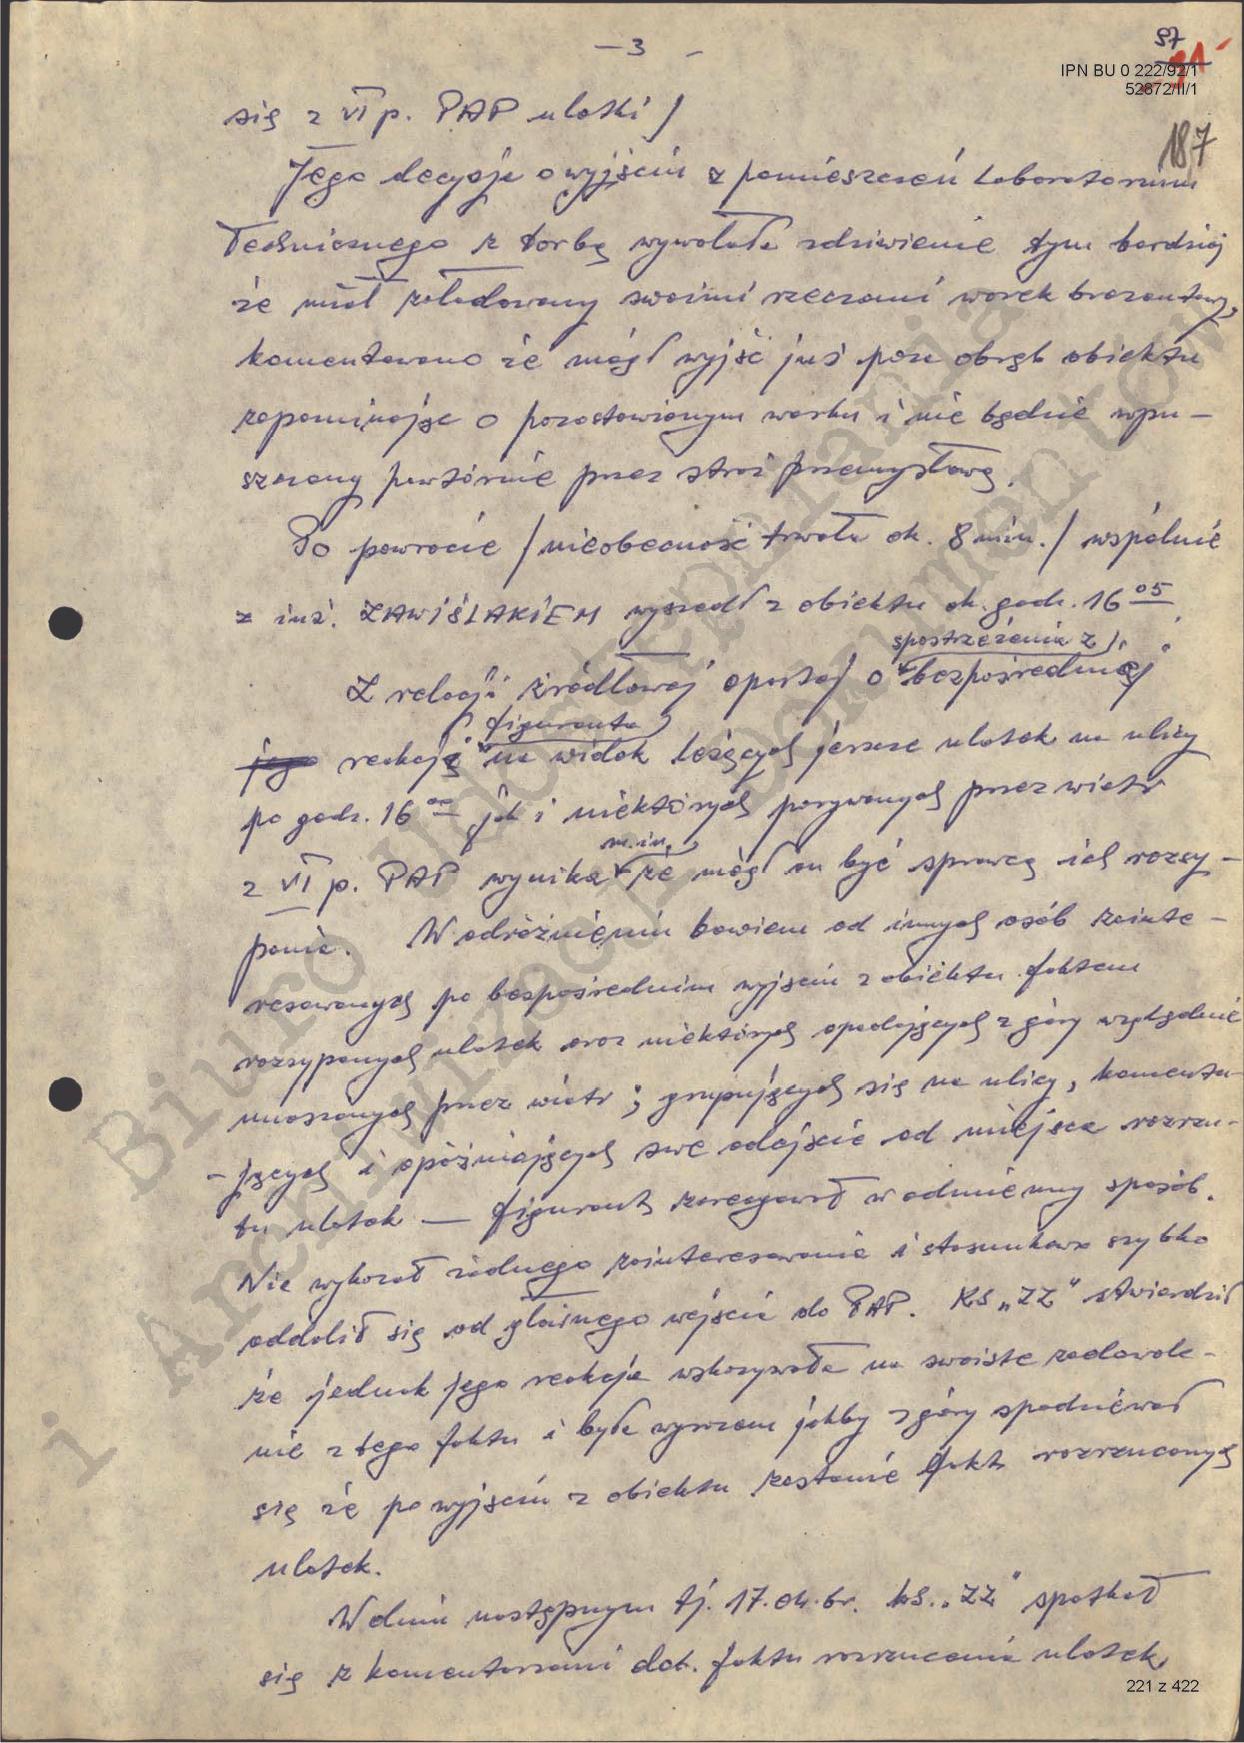 — 3 —
97
91
IPN BU 0 222/92/1
52872/II/1
187
się z VI p. PAP ulotki /
Jego decyzja o wyjściu z pomieszczeń Laboratorium
Technicznego z torbą wywołała zdziwienie tym bardziej
że miał załadowany swoimi rzeczami worek brezentowy,
komentowano że mógł wyjść już poza obręb obiektu
zapominając o pozostawionym worku i nie będzie wpu-
szczony powtórnie przez straż przemysłową.
Po powrocie / nieobecność trwała ok. 8 min. / wspólnie
z inż. ZAWIŚLAKIEM wyszedł z obiektu ok. godz. 16 05
spostrzeżenia z
Z relacji źródłowej opartej o bezpośredniej
figuranta
jego reakcji na widok leżących jeszcze ulotek na ulicy
po godz. 16 00 jak i niektórych porywanych przez wiatr
m.in.
z VI p. PAP wynika że mógł on być sprawcą ich rozsy-
pania. W odróżnieniu bowiem od innych osób zainte-
resowanych po bezpośrednim wyjściu z obiektu faktem
rozsypanych ulotek oraz niektórych opadających z góry względnie
unoszonych przez wiatr; grupujących się na ulicy, komentu-
-jących i opóźniających swe odejście od miejsca rozrzu-
tu ulotek — figurant zareagował w odmienny sposób.
Nie wykazał żadnego zainteresowania i stosunkowo szybko
oddalił się od głównego wejścia do PAP. KS „ZZ" stwierdził
że jednak jego reakcja wskazywała na swoiste zadowole-
nie z tego faktu i była wyrazem jakby z góry spodziewał
się że po wyjściu z obiektu zastanie fakt rozrzuconych
ulotek.
W dniu następnym tj. 17.04.br. ks. „ZZ" spotkał
się z komentarzami dot. faktu rozrzucania ulotek,
221 z 422
Biuro Udostępniania
i Archiwizacji Dokumentów